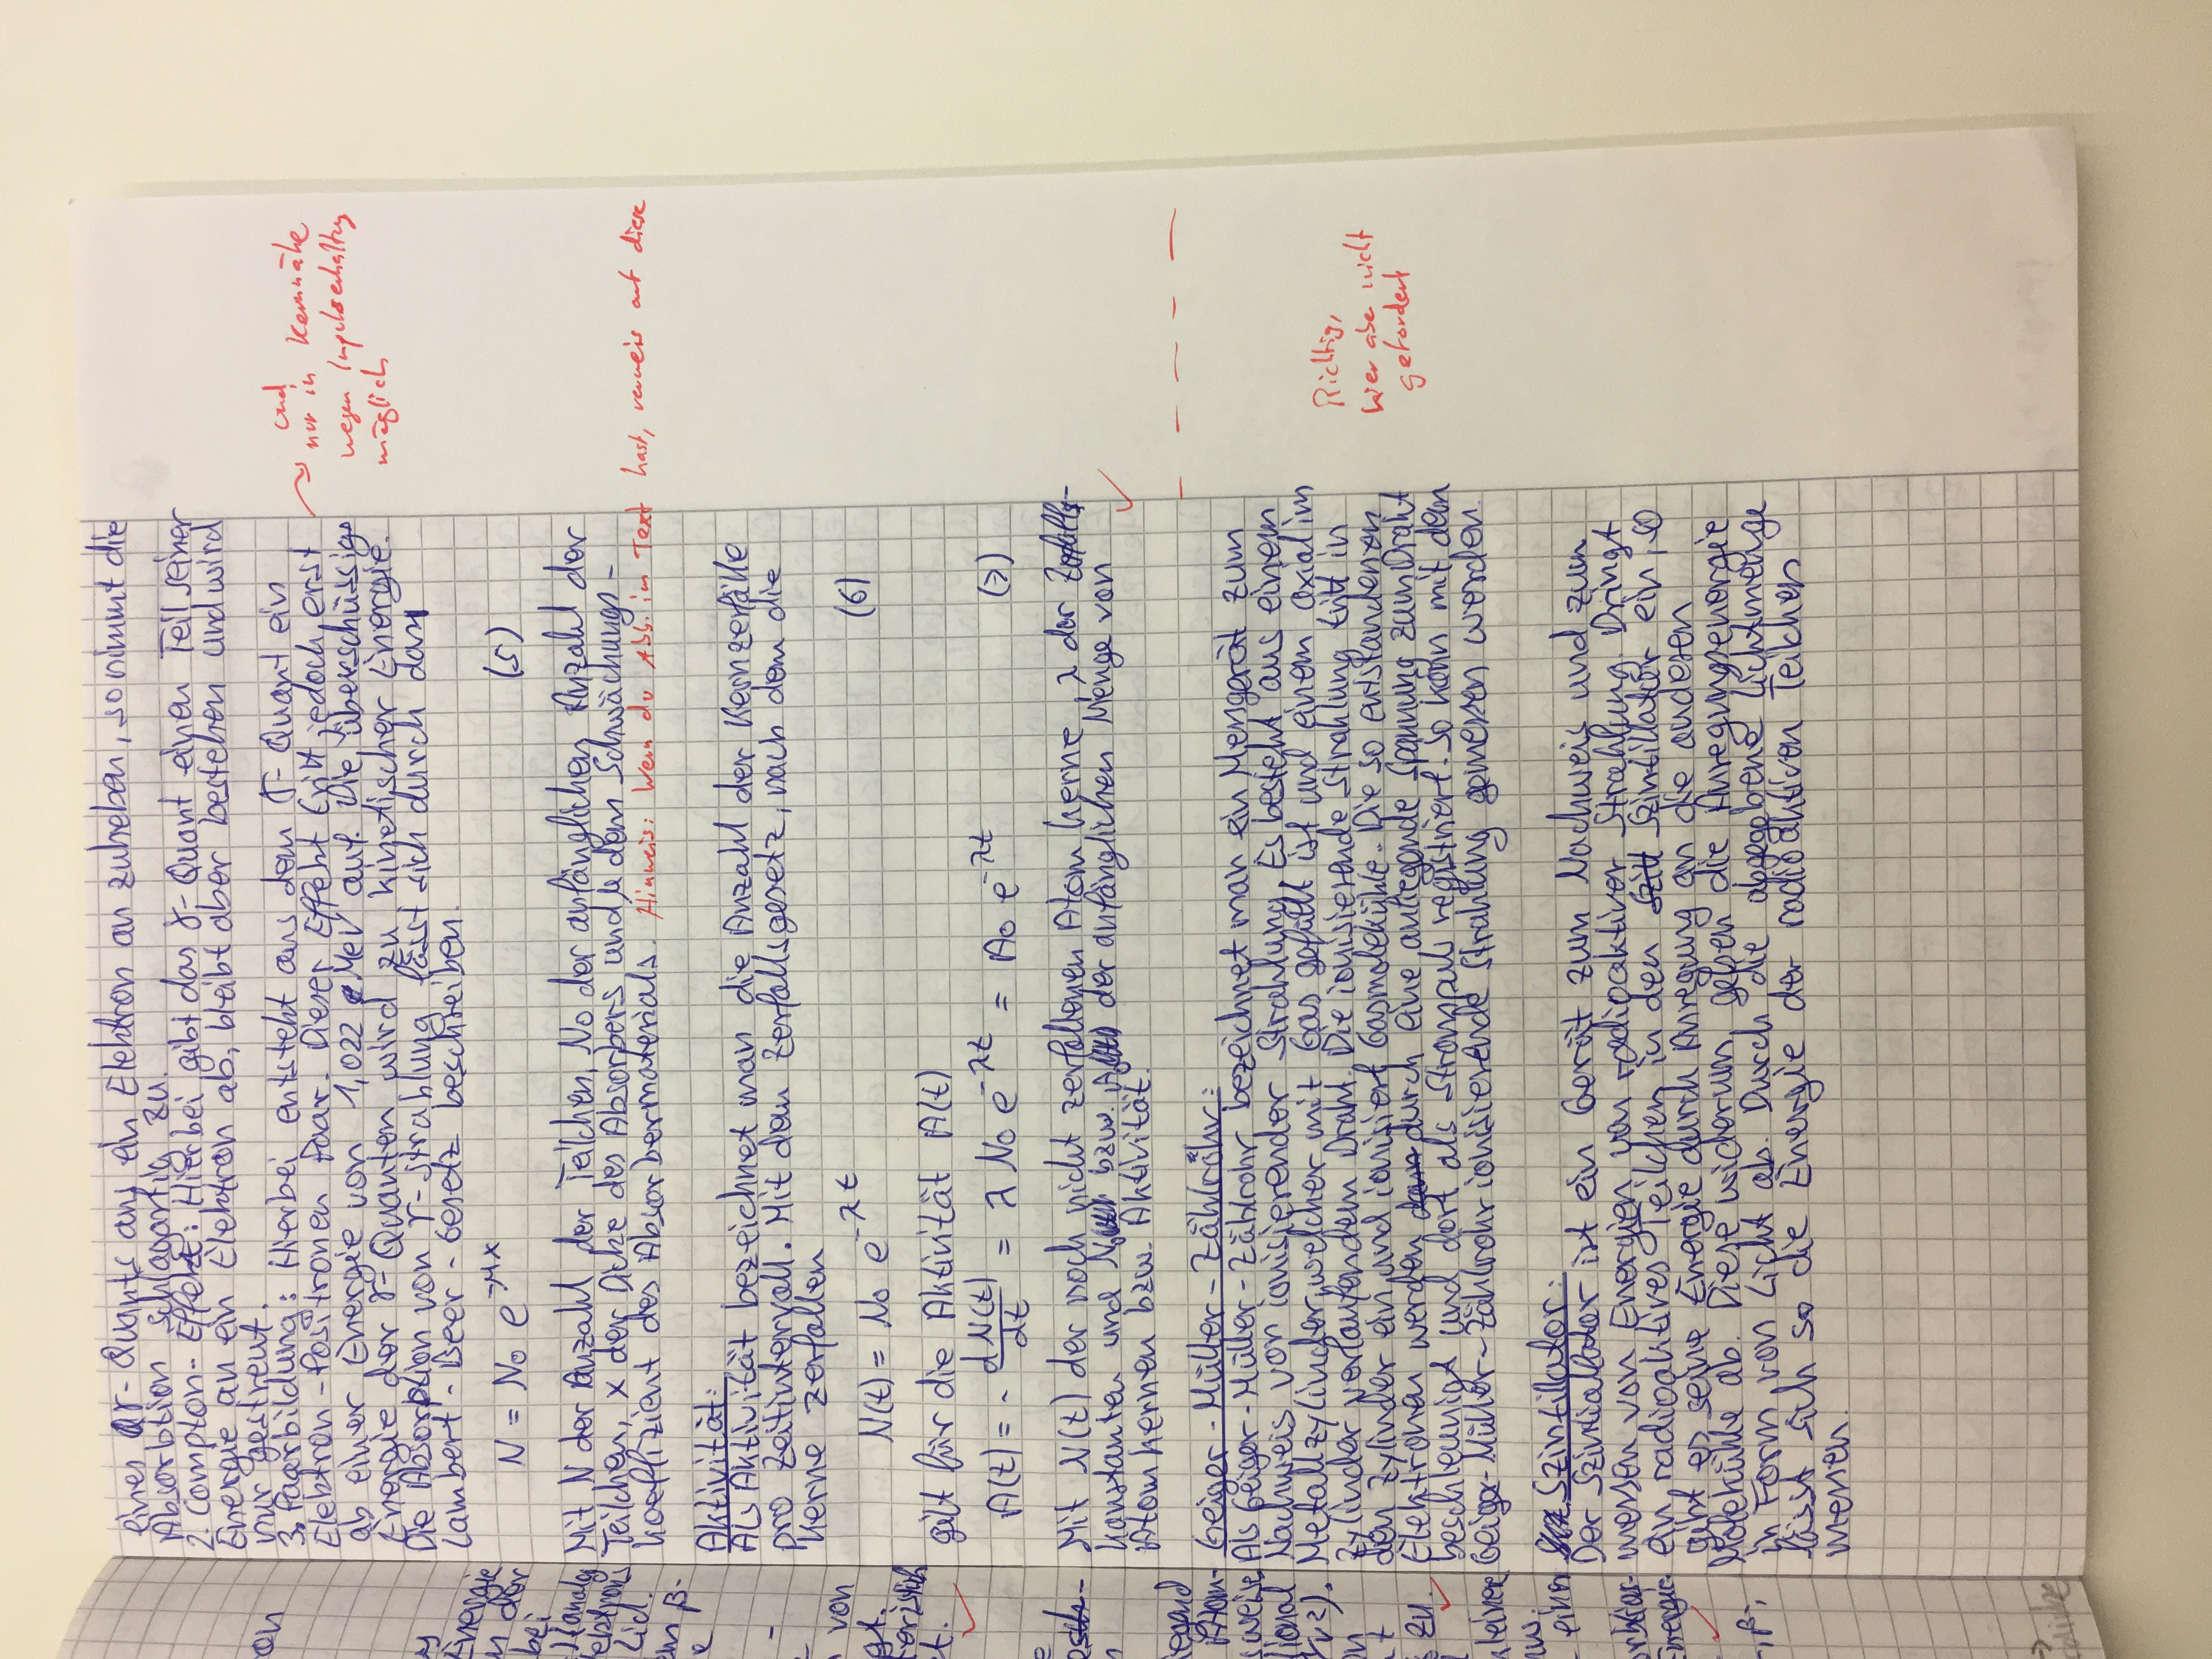 eines γ-Quants aus ein Elektron an zuheben, so nimmt die
Absorbtion schlagartig zu.
2. Compton-Effekt: Hierbei gibt das γ-Quant einen Teil seiner
Energie an ein Elektron ab, bleibt aber bestehen und wird
nur gestreut.
3. Paarbildung: Hierbei entsteht aus dem γ-Quant ein
Elektron-Positronen Paar. Dieser Effekt tritt jedoch erst
ab einer Energie von 1,022 MeV auf. Die überschüssige
Energie der γ-Quanten wird zu kinetischer Energie.
und
nur in Kernnähe
wegen Impulserhaltung
möglich
Die Absorption von γ-Strahlung lässt sich durch das
Lambert-Beer-Gesetz beschreiben.
N = N₀ e^{-μx} (5)
Mit N der Anzahl der Teilchen, N₀ der anfänglichen Anzahl der
Teilchen, x der Dicke des Absorbers und μ dem Schwächungs-
koeffizient des Absorbermaterials.
Hinweis: Wenn du Abb. im Text hast, verweis auf diese
Aktivität:
Als Aktivität bezeichnet man die Anzahl der Kernzerfälle
pro Zeitintervall. Mit dem Zerfallsgesetz, nach dem die
Kerne zerfallen
N(t) = N₀ e^{-λt} (6)
gilt für die Aktivität A(t)
A(t) = - dN(t)/dt = λ N₀ e^{-λt} = A₀ e^{-λt} (7)
Mit N(t) der noch nicht zerfallenen Atom kerne, λ der Zerfalls-
konstanten und N₀ bzw. A₀ der anfänglichen Menge von
Atomkernen bzw. Aktivität.
Geiger-Müller-Zählrohr:
Als Geiger-Müller-Zählrohr bezeichnet man ein Messgerät zum
Nachweis von ionisierender Strahlung. Es besteht aus einem
Metallzylinder, welcher mit Gas gefüllt ist und einem axial im
Zylinder verlaufendem Draht. Die ionisierende Strahlung tritt in
den Zylinder ein und ionisiert Gasmolekühle. Die so entstandenen
Elektronen werden durch eine anliegende Spannung zum Draht
beschleunigt und dort als Strompuls registriert. So kann mit dem
Geiger-Müller-Zählrohr ionisierende Strahlung gemessen werden.
Richtig,
hier aber nicht
gefordert
Szintillator:
Der Szintiallator ist ein Gerät zum Nachweis und zum
messen von Energien von radioaktiver Strahlung. Dringt
ein radioaktives Teilchen in den Szintillator ein, so
gibt es seine Energie durch Anregung an die anderen
Molekühle ab. Diese widerum geben die Anregungsenergie
in Form von Licht ab. Durch die abgegebene Lichtmenge
lässt sich so die Energie der radioaktiven Teilchen
messen.